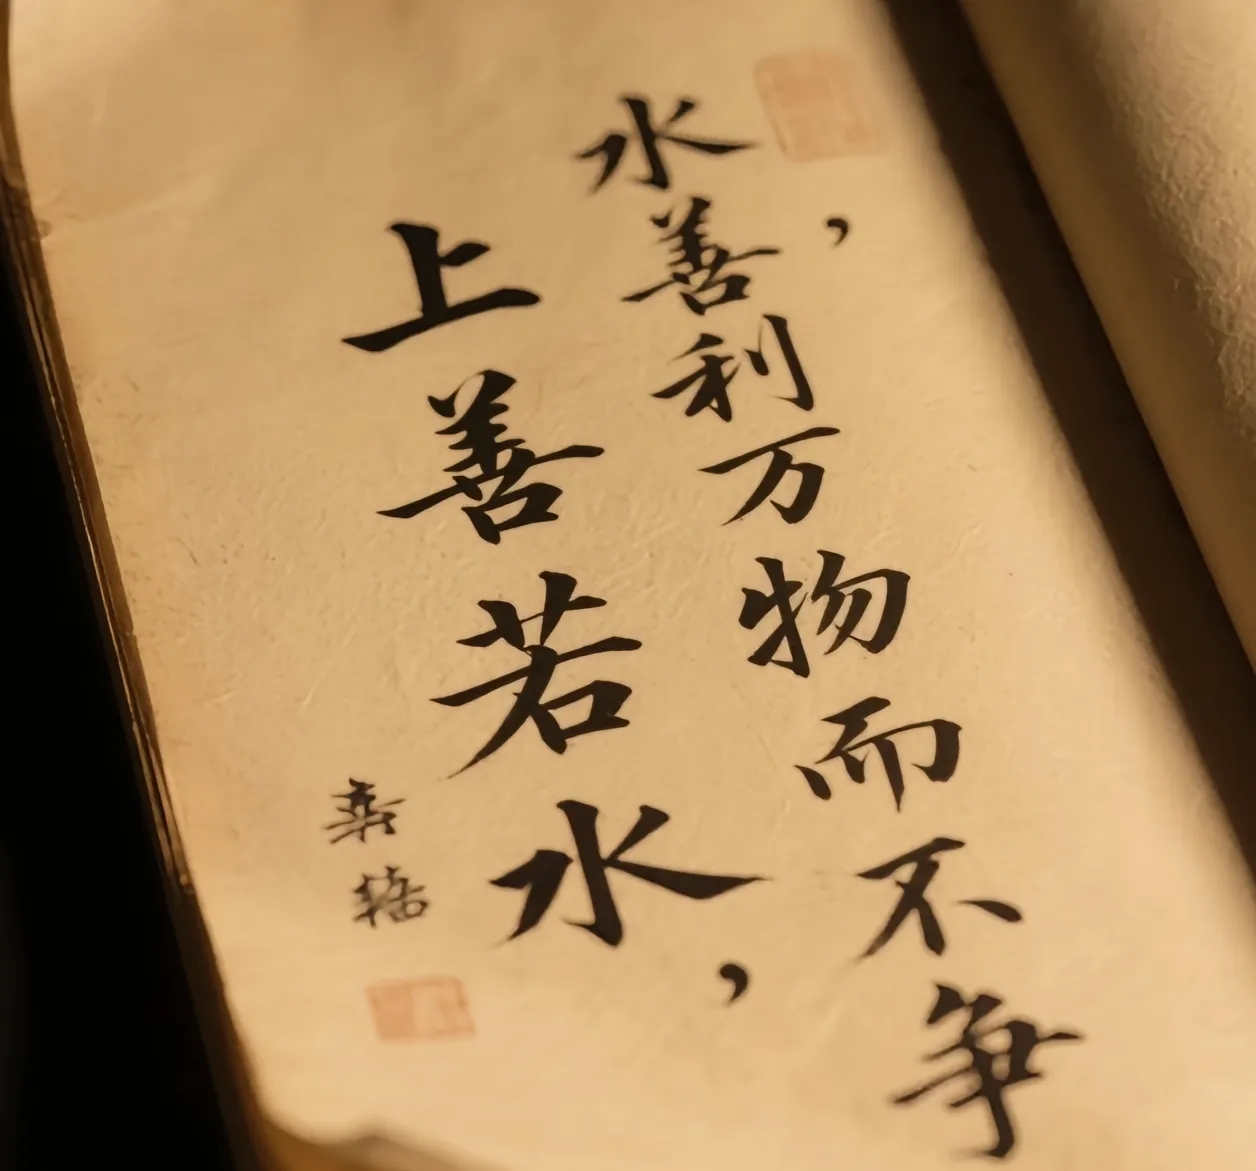 上善若水，
水，善利万物而不爭